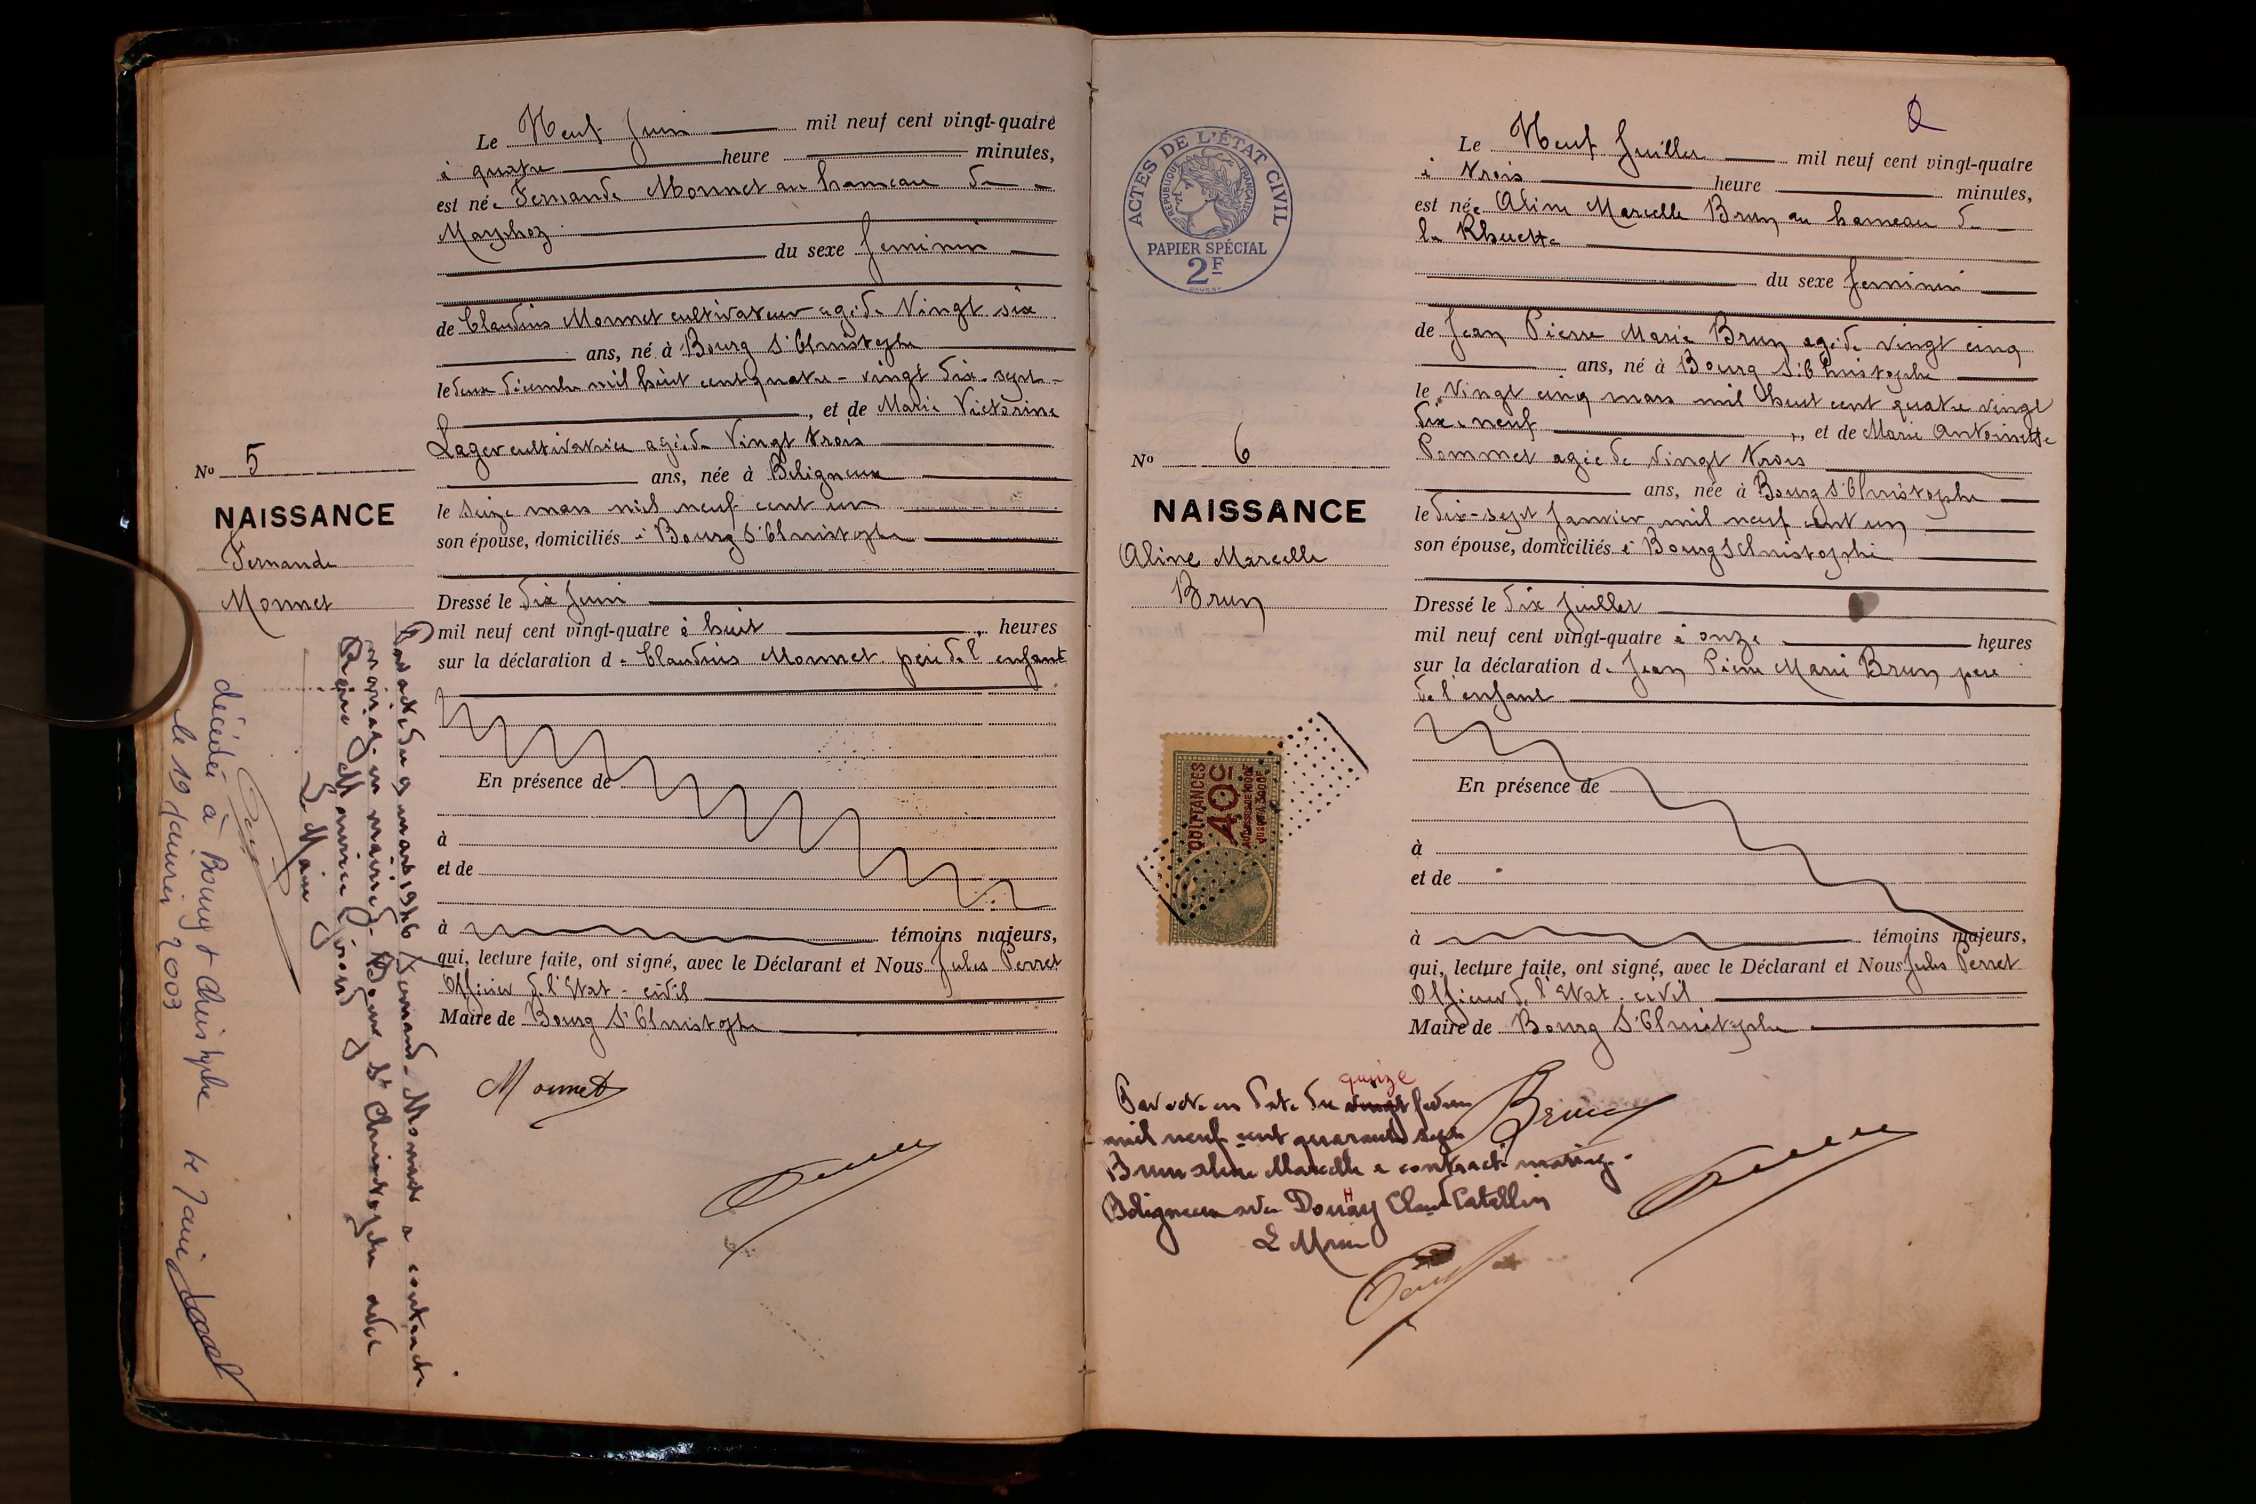 Le Neuf Juin mil neuf cent vingt-quatre
à quatre heure minutes,
est née Fernande Monnet au hameau de
Marphoz
du sexe féminin
de Claudius Monnet cultivateur agé de Vingt six
ans, né à Bourg St Christophe
le deux décembre mil huit cent quatre-vingt dix-sept
, et de Marie Victorine
Lager cultivatrice agée de Vingt trois
ans, née à Beligneux
le seize mars mil neuf cent un
son épouse, domiciliés à Bourg St Christophe
No 5
NAISSANCE
Fernande
Monnet
Dressé le dix Juin
mil neuf cent vingt-quatre à huit heures
sur la déclaration de Claudius Monnet père de l'enfant
En présence de
à
et de
à témoins majeurs,
qui, lecture faite, ont signé, avec le Déclarant et Nous Jules Perret
Officier de l'Etat-civil
Maire de Bourg St Christophe
Monnet
Par acte du 9 mars 1946 Fernande Monnet a contracté
mariage en mairie de Bourg St Christophe avec
Maurice
Le Maire
décédée à Bourg St Christophe
le 19 janvier 2003
Le Maire
ACTES DE L'ÉTAT CIVIL
RÉPUBLIQUE FRANÇAISE
PAPIER SPÉCIAL
2F
Le Neuf Juillet mil neuf cent vingt-quatre
à trois heure minutes,
est née Aline Marcelle Brun au hameau de
la Rhuette
du sexe féminin
de Jean Pierre Marie Brun agé de vingt cinq
ans, né à Bourg St Christophe
le Vingt cinq mars mil huit cent quatre vingt
dix-neuf , et de Marie Antoinette
Pommet agée de vingt trois
ans, née à Bourg St Christophe
le dix-sept Janvier mil neuf cent un
son épouse, domiciliés à Bourg St Christophe
No 6
NAISSANCE
Aline Marcelle
Brun
Dressé le dix Juillet
mil neuf cent vingt-quatre à onze heures
sur la déclaration de Jean Pierre Marie Brun père
de l'enfant
QUITTANCES
40c
En présence de
à
et de
à témoins majeurs,
qui, lecture faite, ont signé, avec le Déclarant et Nous Jules Perret
Officier de l'Etat-civil
Maire de Bourg St Christophe
Brun
quinze
Par acte en date du vingt
mil neuf cent quarante sept
Brun Aline Marcelle a contracté mariage
Beligneux avec Douhay Claude Catellin
Le Maire